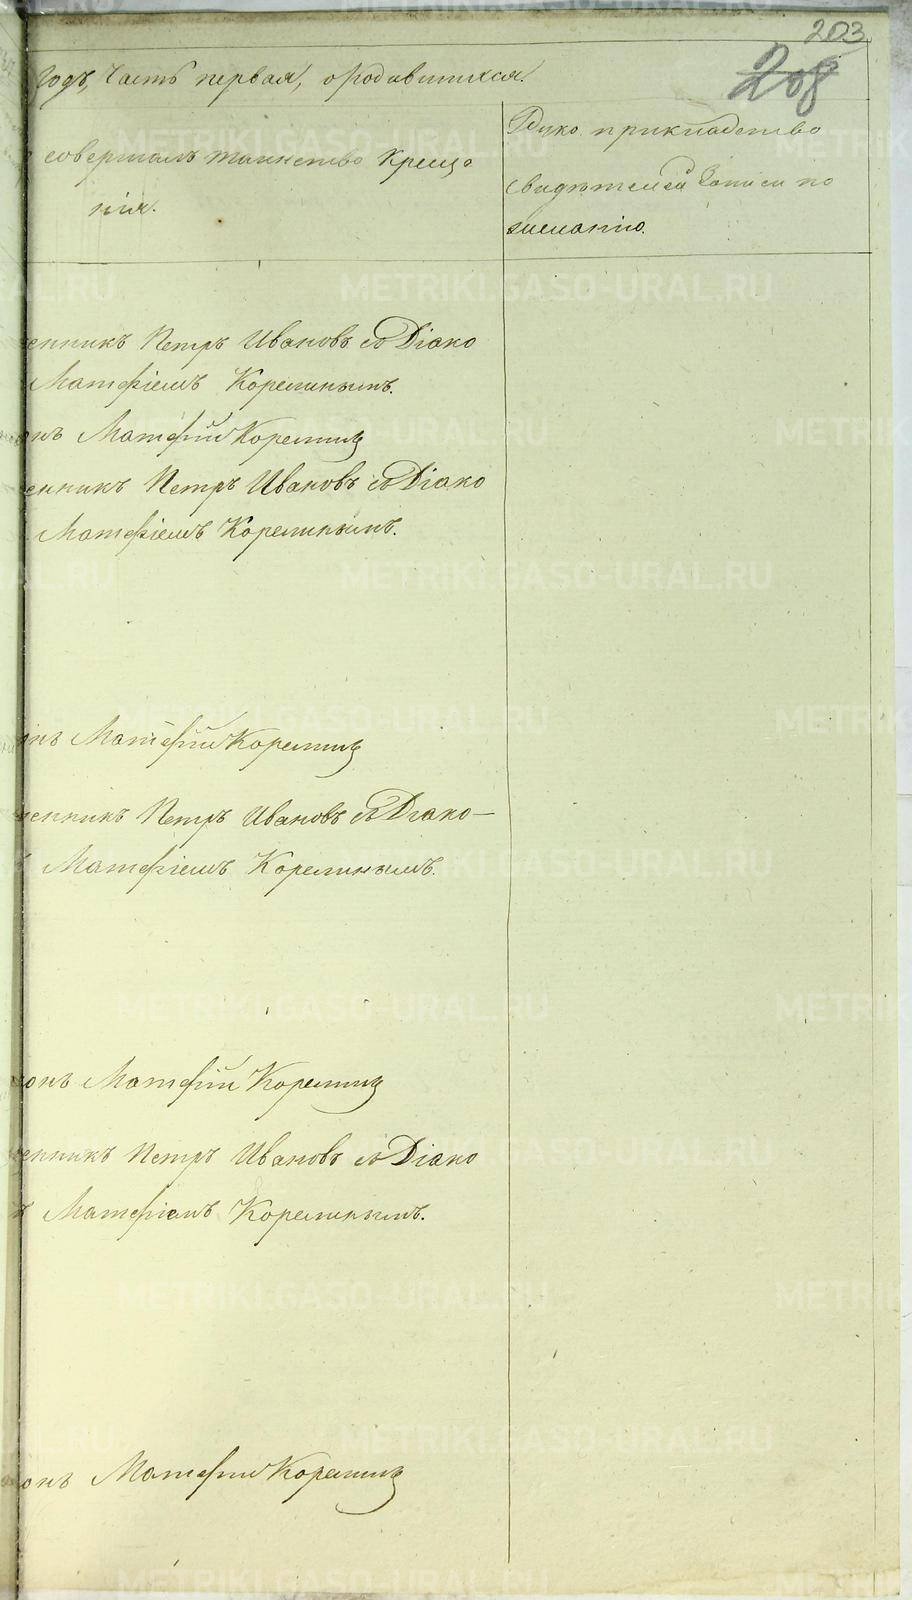 203
208
Годъ, Часть первая, о родившихся.
совершалъ таинство креще
нія.
Руко прикладство
свидѣтелей записи по
желанію.
енникъ Петръ Ивановъ съ Діако
Матфіемъ Корелинымъ.
нъ Матфій Корелинъ
енникъ Петръ Ивановъ съ Діако
Матфіемъ Корелинымъ.
нъ Матфій Корелинъ
енникъ Петръ Ивановъ съ Діако—
Матфіемъ Корелинымъ.
онъ Матфій Корелинъ
енникъ Петръ Ивановъ съ Діако
ъ Матфіемъ Корелинымъ.
онъ Матфій Корелинъ
METRIKI.GASO-URAL.RU